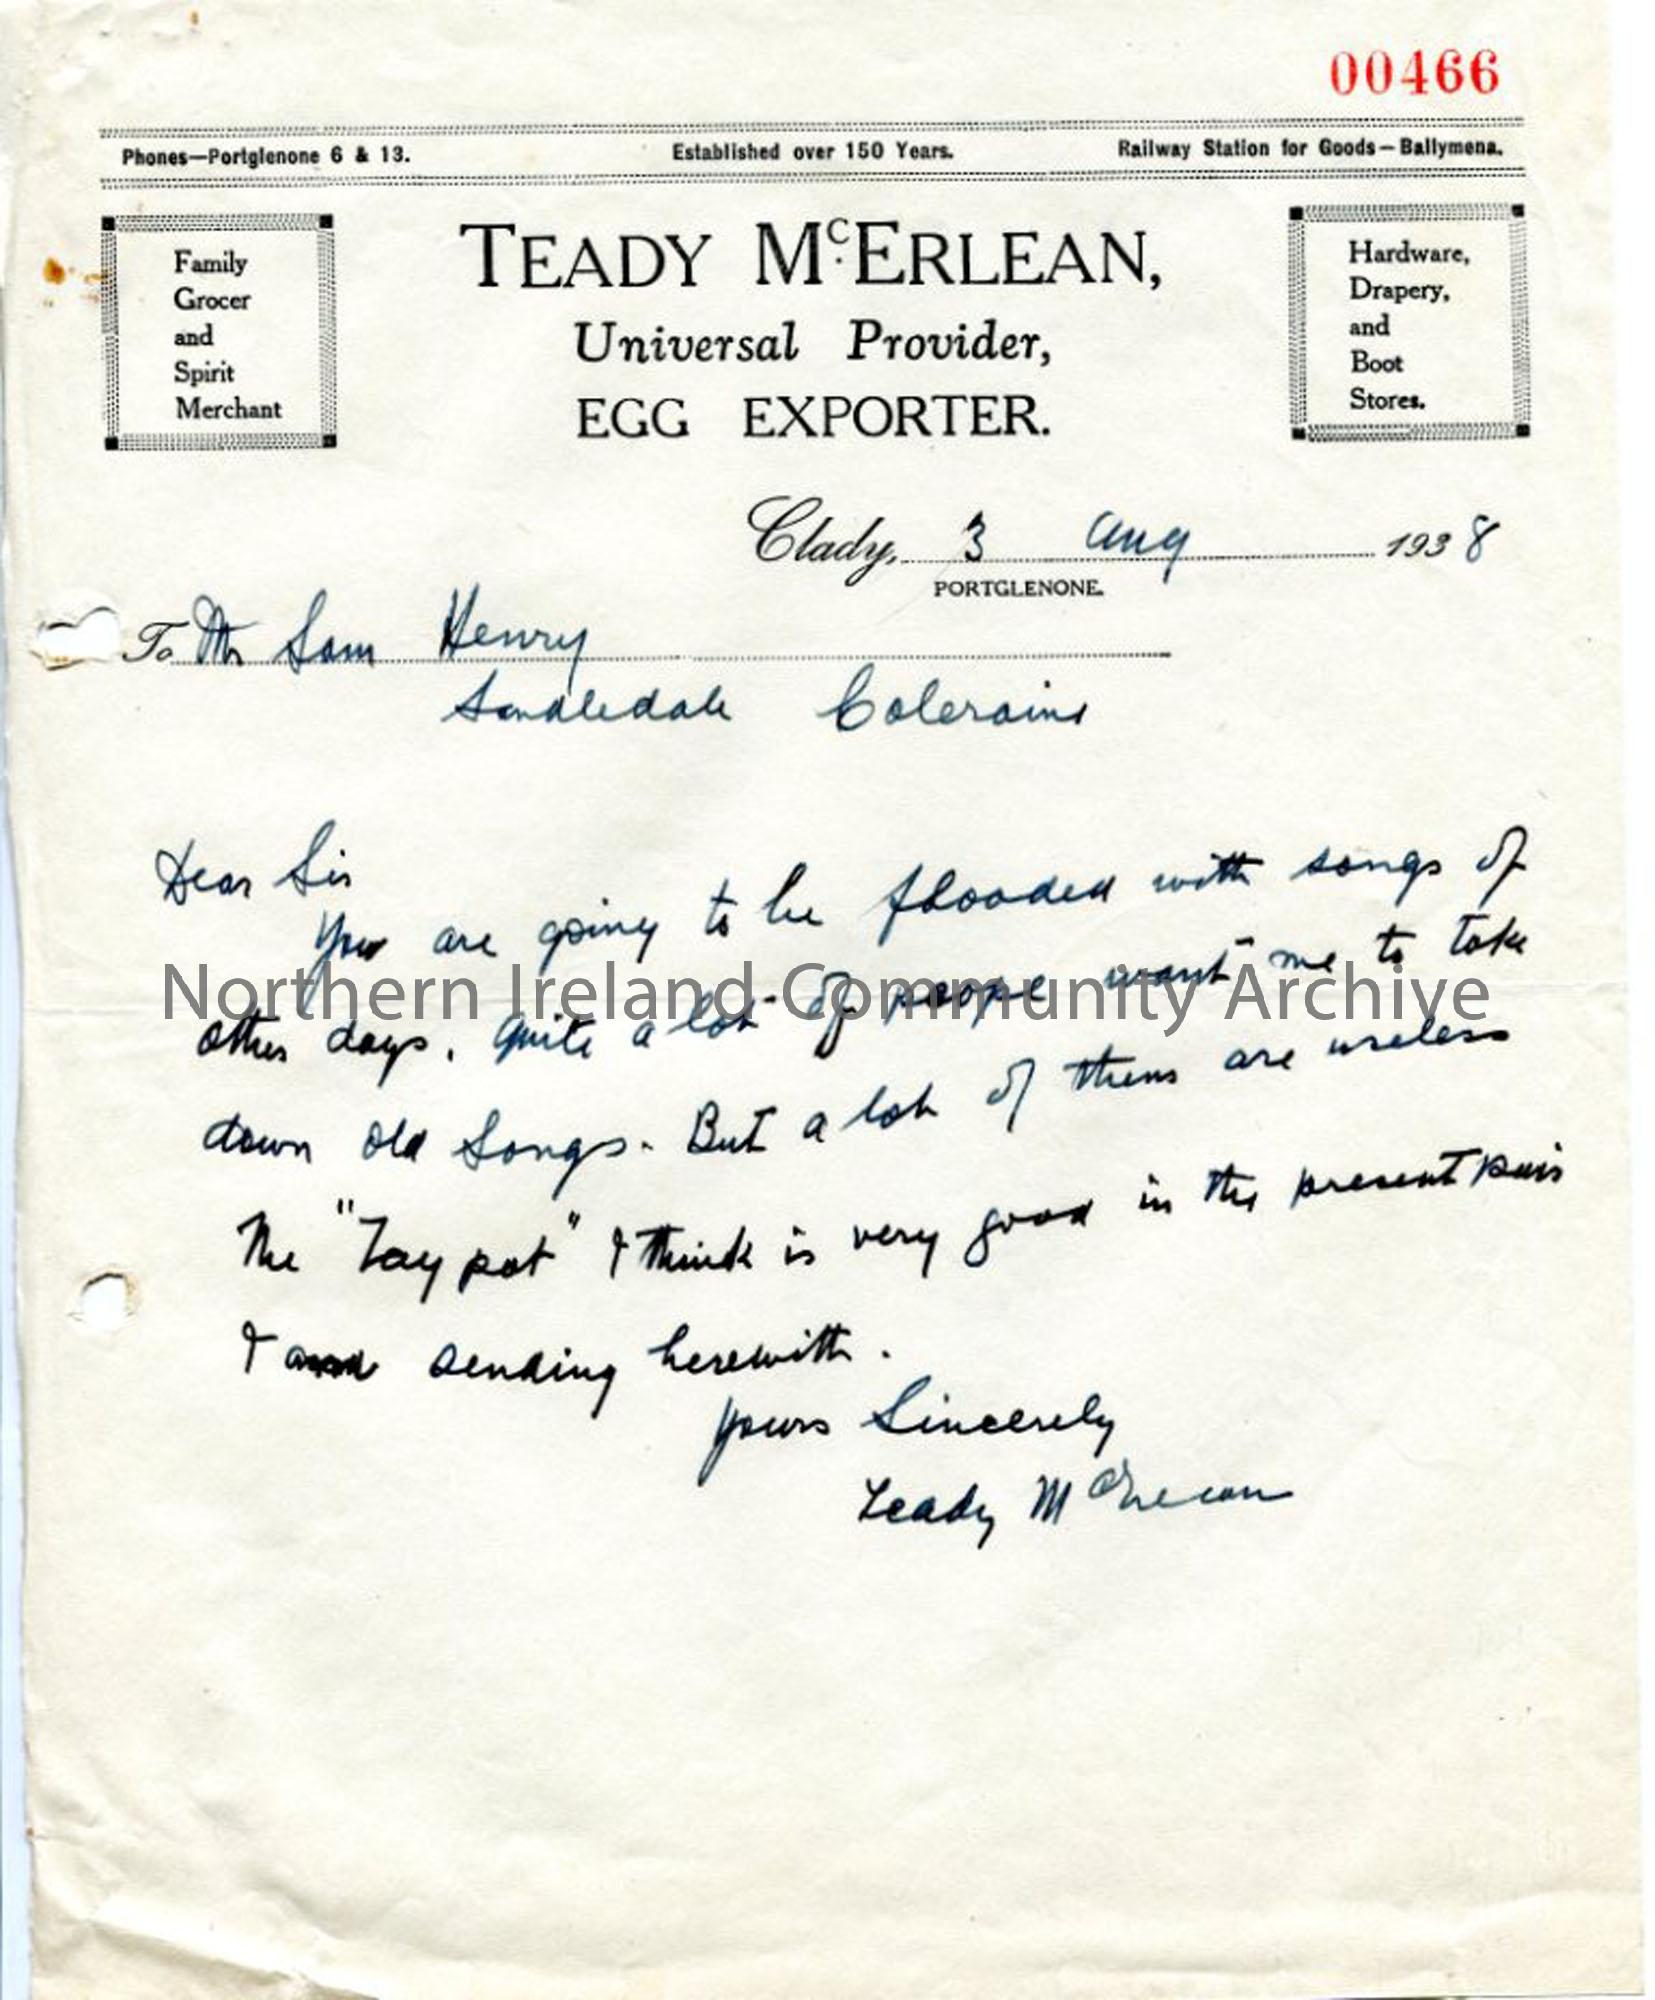 00466
Phones—Portglenone 6 & 13. Established over 150 Years. Railway Station for Goods—Ballymena.
Family
Grocer
and
Spirit
Merchant
TEADY McERLEAN,
Universal Provider,
EGG EXPORTER.
Hardware,
Drapery,
and
Boot
Stores.
Clady, 3 Aug 1938
PORTGLENONE.
To Mr Sam Henry
Sandledale Coleraine
Dear Sir
You are going to be flooded with songs of
other days. Quite a lot of people want me to take
down old Songs. But a lot of them are useless
The "Tay pot" I think is very good in the present pair
I am sending herewith.
Yours Sincerely
Teady McErlean
Northern Ireland Community Archive